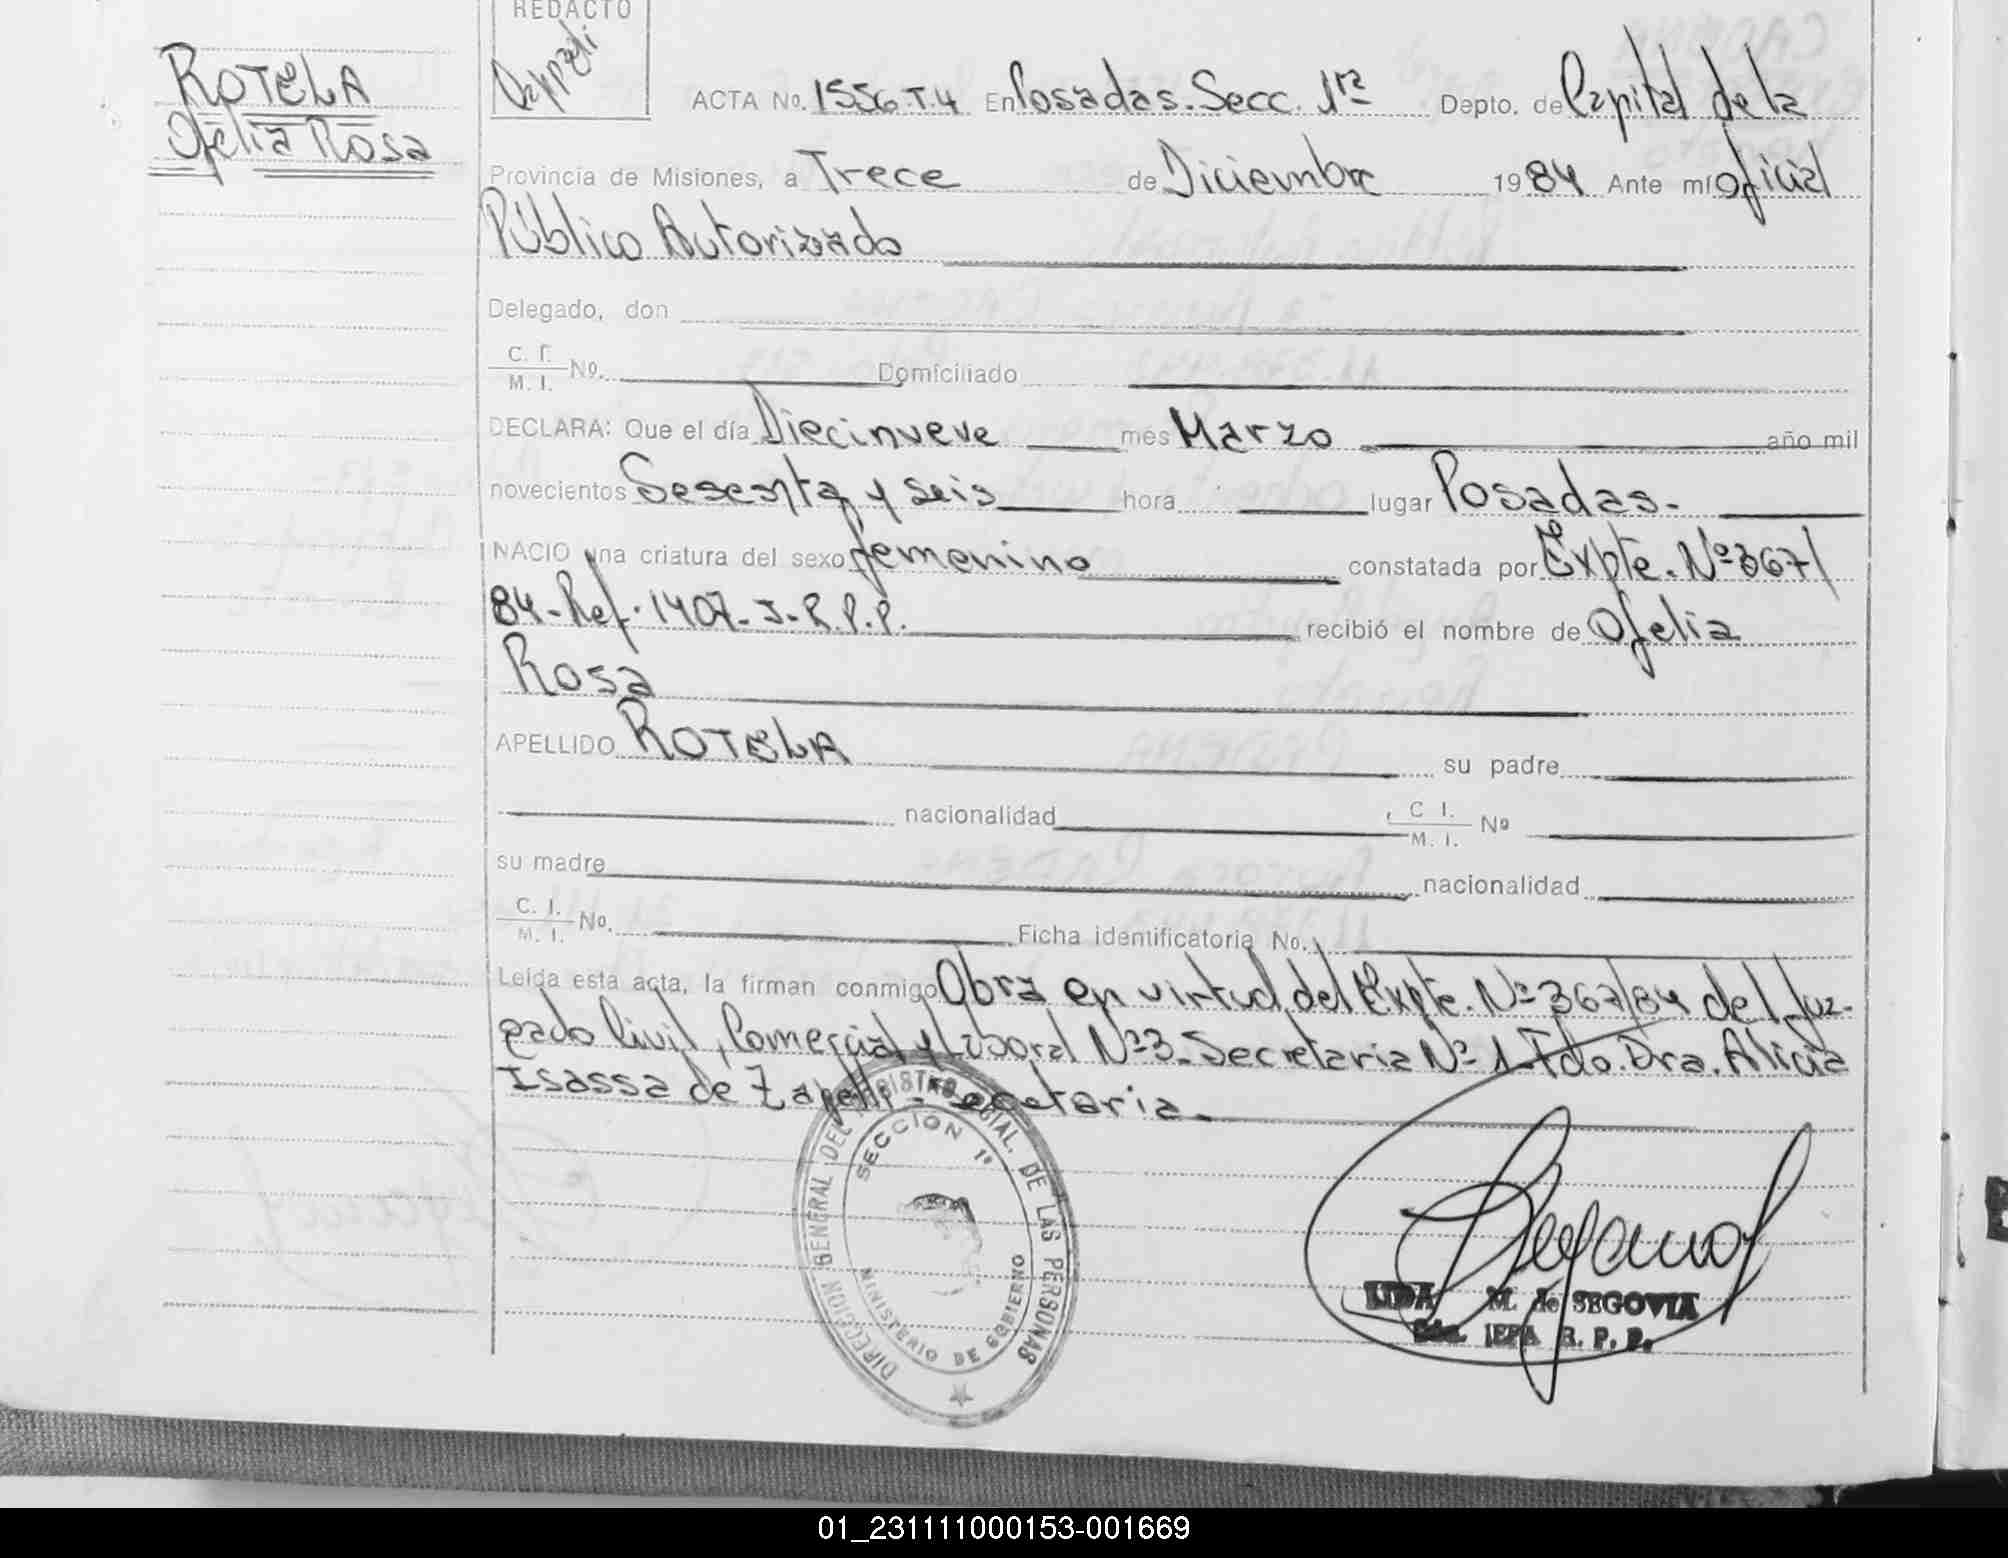 REDACTO
ROTELA
Ofelia Rosa
ACTA No. 1556.T.4 En Posadas. Secc. 1ra Depto. de Capital de la
Provincia de Misiones, a Trece de Diciembre 1984 Ante mí Oficial
Público Autorizado
Delegado, don
C. I.
M. I. No. Domiciliado
DECLARA: Que el día Diecinueve mes Marzo año mil
novecientos Sesenta y seis hora lugar Posadas.
NACIO una criatura del sexo femenino constatada por Expte. Nº 367/
84-Ref. 1407-J-R.P.P. recibió el nombre de Ofelia
Rosa
APELLIDO ROTELA su padre
nacionalidad C I.
M. I. Nº
su madre nacionalidad
C. I.
M. I. No. Ficha identificatoria No.
Leída esta acta, la firman conmigo Obra en virtud del Expte. Nº 367/84 del Juz-
gado Civil, Comercial y Laboral Nº 3. Secretaria Nº 1. Fdo. Dra. Alicia
Isassa de Zapelli - Secretaria.
DIRECCION GENERAL DEL REGISTRO PROVINCIAL DE LAS PERSONAS
SECCION 1ª
MINISTERIO DE GOBIERNO
LIDA M. de SEGOVIA
JEFA R. P. P.
01_231111000153-001669